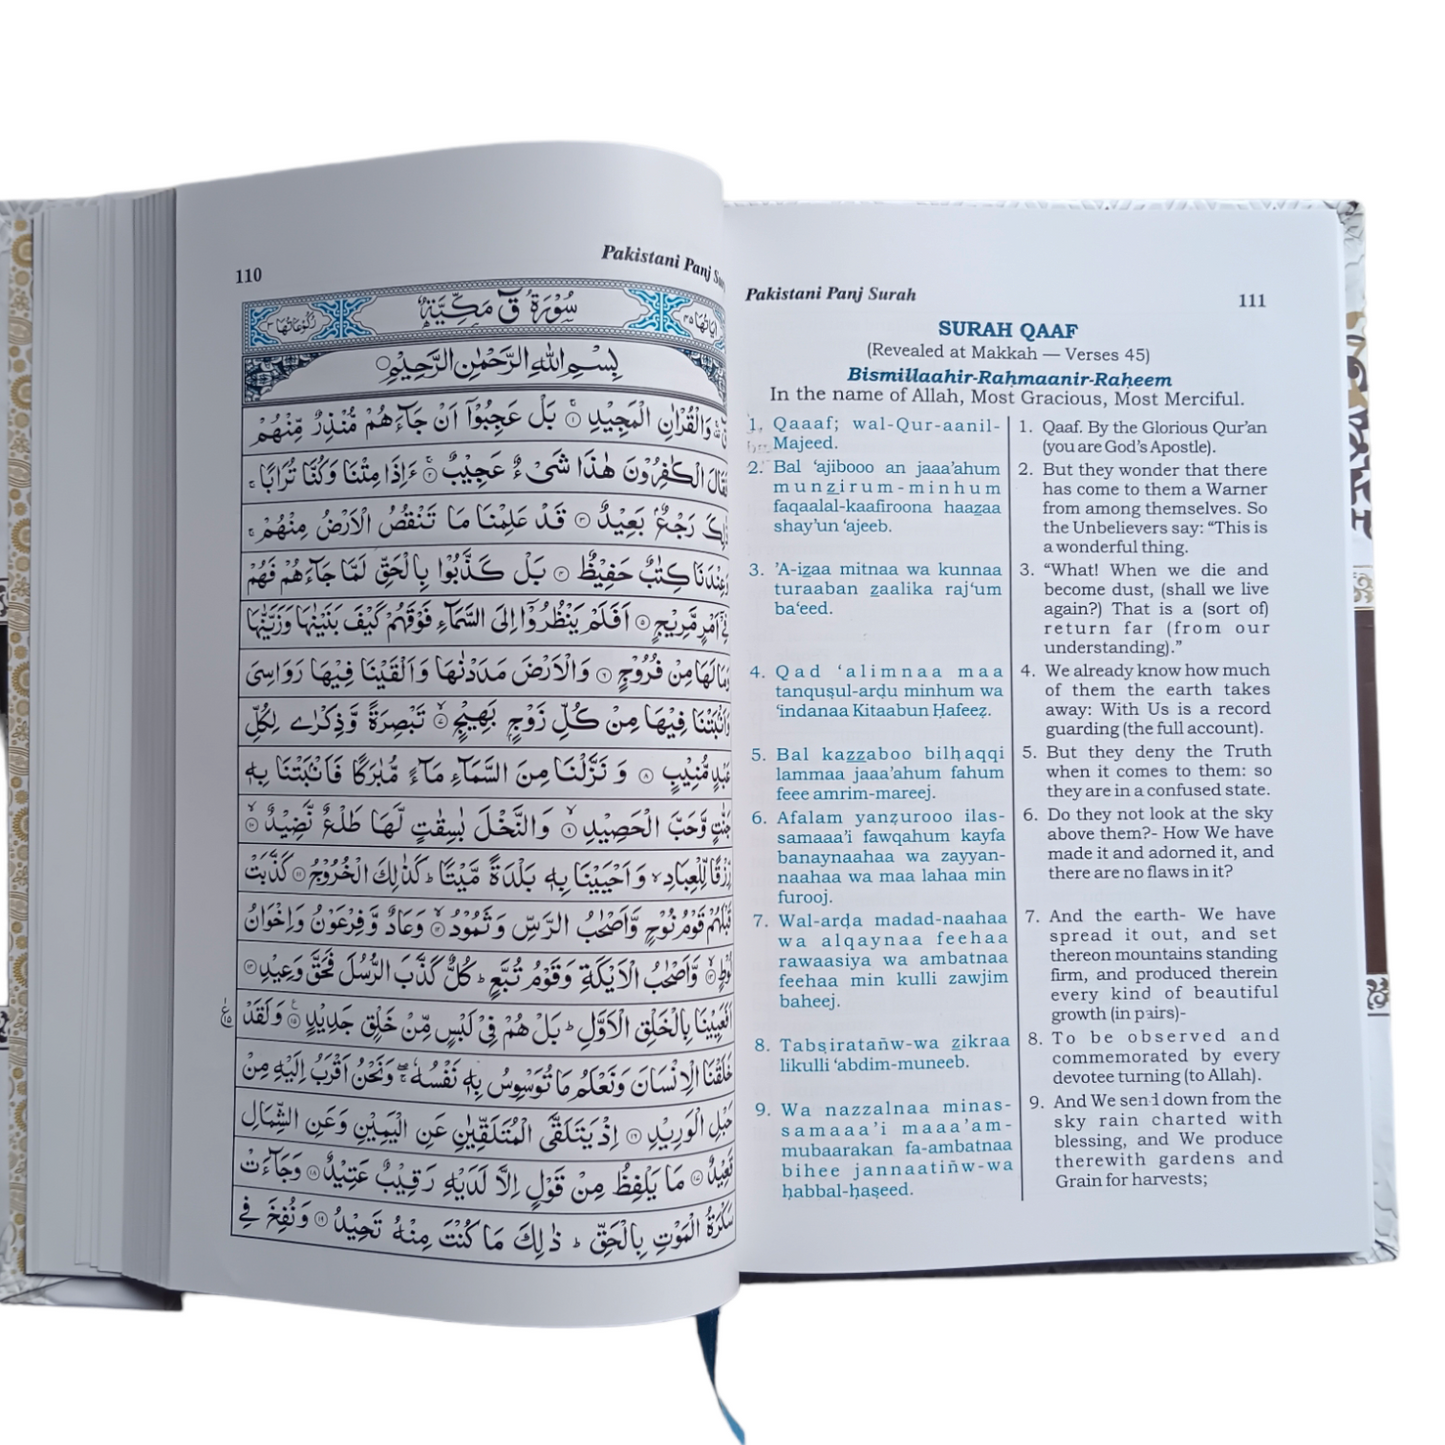 110
Pakistani Panj Sur
سُوْرَةُ قٓ مَكِّيَّةٌ
اٰيَاتُهَا ٤٥
رُكُوْعَاتُهَا ٣
بِسْمِ اللّٰهِ الرَّحْمٰنِ الرَّحِيْمِ
وَالْقُرْاٰنِ الْمَجِيْدِ ۝١ بَلْ عَجِبُوْٓا اَنْ جَآءَهُمْ مُّنْذِرٌ مِّنْهُمْ
فَقَالَ الْكٰفِرُوْنَ هٰذَا شَیْءٌ عَجِيْبٌ ۝٢ ءَاِذَا مِتْنَا وَكُنَّا تُرَابًا ۚ
ذٰلِكَ رَجْعٌۢ بَعِيْدٌ ۝٣ قَدْ عَلِمْنَا مَا تَنْقُصُ الْاَرْضُ مِنْهُمْ ۚ
وَعِنْدَنَا كِتٰبٌ حَفِيْظٌ ۝٤ بَلْ كَذَّبُوْا بِالْحَقِّ لَمَّا جَآءَهُمْ فَهُمْ
فِیْٓ اَمْرٍ مَّرِيْجٍ ۝٥ اَفَلَمْ يَنْظُرُوْٓا اِلَى السَّمَآءِ فَوْقَهُمْ كَيْفَ بَنَيْنٰهَا وَزَيَّنّٰهَا
وَمَا لَهَا مِنْ فُرُوْجٍ ۝٦ وَالْاَرْضَ مَدَدْنٰهَا وَاَلْقَيْنَا فِيْهَا رَوَاسِیَ
وَاَنْۢبَتْنَا فِيْهَا مِنْ كُلِّ زَوْجٍۭ بَهِيْجٍ ۝٧ تَبْصِرَةً وَّذِكْرٰى لِكُلِّ
عَبْدٍ مُّنِيْبٍ ۝٨ وَنَزَّلْنَا مِنَ السَّمَآءِ مَآءً مُّبٰرَكًا فَاَنْۢبَتْنَا بِهٖ
جَنّٰتٍ وَّحَبَّ الْحَصِيْدِ ۝٩ وَالنَّخْلَ بٰسِقٰتٍ لَّهَا طَلْعٌ نَّضِيْدٌ ۝١٠
رِّزْقًا لِّلْعِبَادِ ۙ وَاَحْيَيْنَا بِهٖ بَلْدَةً مَّيْتًا ؕ كَذٰلِكَ الْخُرُوْجُ ۝١١ كَذَّبَتْ
قَبْلَهُمْ قَوْمُ نُوْحٍ وَّاَصْحٰبُ الرَّسِّ وَثَمُوْدُ ۝١٢ وَعَادٌ وَّفِرْعَوْنُ وَاِخْوَانُ
لُوْطٍ ۝١٣ وَّاَصْحٰبُ الْاَيْكَةِ وَقَوْمُ تُبَّعٍ ؕ كُلٌّ كَذَّبَ الرُّسُلَ فَحَقَّ وَعِيْدِ ۝١٤
اَفَعَيِيْنَا بِالْخَلْقِ الْاَوَّلِ ؕ بَلْ هُمْ فِیْ لَبْسٍ مِّنْ خَلْقٍ جَدِيْدٍ ۝١٥ وَلَقَدْ
خَلَقْنَا الْاِنْسَانَ وَنَعْلَمُ مَا تُوَسْوِسُ بِهٖ نَفْسُهٗ ۖ وَنَحْنُ اَقْرَبُ اِلَيْهِ مِنْ
حَبْلِ الْوَرِيْدِ ۝١٦ اِذْ يَتَلَقَّى الْمُتَلَقِّيٰنِ عَنِ الْيَمِيْنِ وَعَنِ الشِّمَالِ
قَعِيْدٌ ۝١٧ مَا يَلْفِظُ مِنْ قَوْلٍ اِلَّا لَدَيْهِ رَقِيْبٌ عَتِيْدٌ ۝١٨ وَجَآءَتْ
سَكْرَةُ الْمَوْتِ بِالْحَقِّ ؕ ذٰلِكَ مَا كُنْتَ مِنْهُ تَحِيْدُ ۝١٩ وَنُفِخَ فِی
Pakistani Panj Surah
111
SURAH QAAF
(Revealed at Makkah — Verses 45)
Bismillaahir-Raḥmaanir-Raḥeem
In the name of Allah, Most Gracious, Most Merciful.
1. Qaaaf; wal-Qur-aanil-
Majeed.
2. Bal ‘ajibooo an jaaa’ahum
munz̲irum-minhum
faqaalal-kaafiroona haaz̲aa
shay’un ‘ajeeb.
3. ’A-iz̲aa mitnaa wa kunnaa
turaaban z̲aalika raj‘um
ba‘eed.
4. Qad ‘alimnaa maa
tanquṣul-arḍu minhum wa
‘indanaa Kitaabun Ḥafeeẓ.
5. Bal kaz̲z̲aboo bilḥaqqi
lammaa jaaa’ahum fahum
feee amrim-mareej.
6. Afalam yanẓurooo ilas-
samaaa’i fawqahum kayfa
banaynaahaa wa zayyan-
naahaa wa maa lahaa min
furooj.
7. Wal-arḍa madad-naahaa
wa alqaynaa feehaa
rawaasiya wa ambatnaa
feehaa min kulli zawjim
baheej.
8. Tabṣiratañw-wa z̲ikraa
likulli ‘abdim-muneeb.
9. Wa nazzalnaa minas-
samaaa’i maaa’am-
mubaarakan fa-ambatnaa
bihee jannaatiñw-wa
ḥabbal-ḥaṣeed.
1. Qaaf. By the Glorious Qur’an
(you are God’s Apostle).
2. But they wonder that there
has come to them a Warner
from among themselves. So
the Unbelievers say: “This is
a wonderful thing.
3. “What! When we die and
become dust, (shall we live
again?) That is a (sort of)
return far (from our
understanding).”
4. We already know how much
of them the earth takes
away: With Us is a record
guarding (the full account).
5. But they deny the Truth
when it comes to them: so
they are in a confused state.
6. Do they not look at the sky
above them?- How We have
made it and adorned it, and
there are no flaws in it?
7. And the earth- We have
spread it out, and set
thereon mountains standing
firm, and produced therein
every kind of beautiful
growth (in pairs)-
8. To be observed and
commemorated by every
devotee turning (to Allah).
9. And We send down from the
sky rain charted with
blessing, and We produce
therewith gardens and
Grain for harvests;